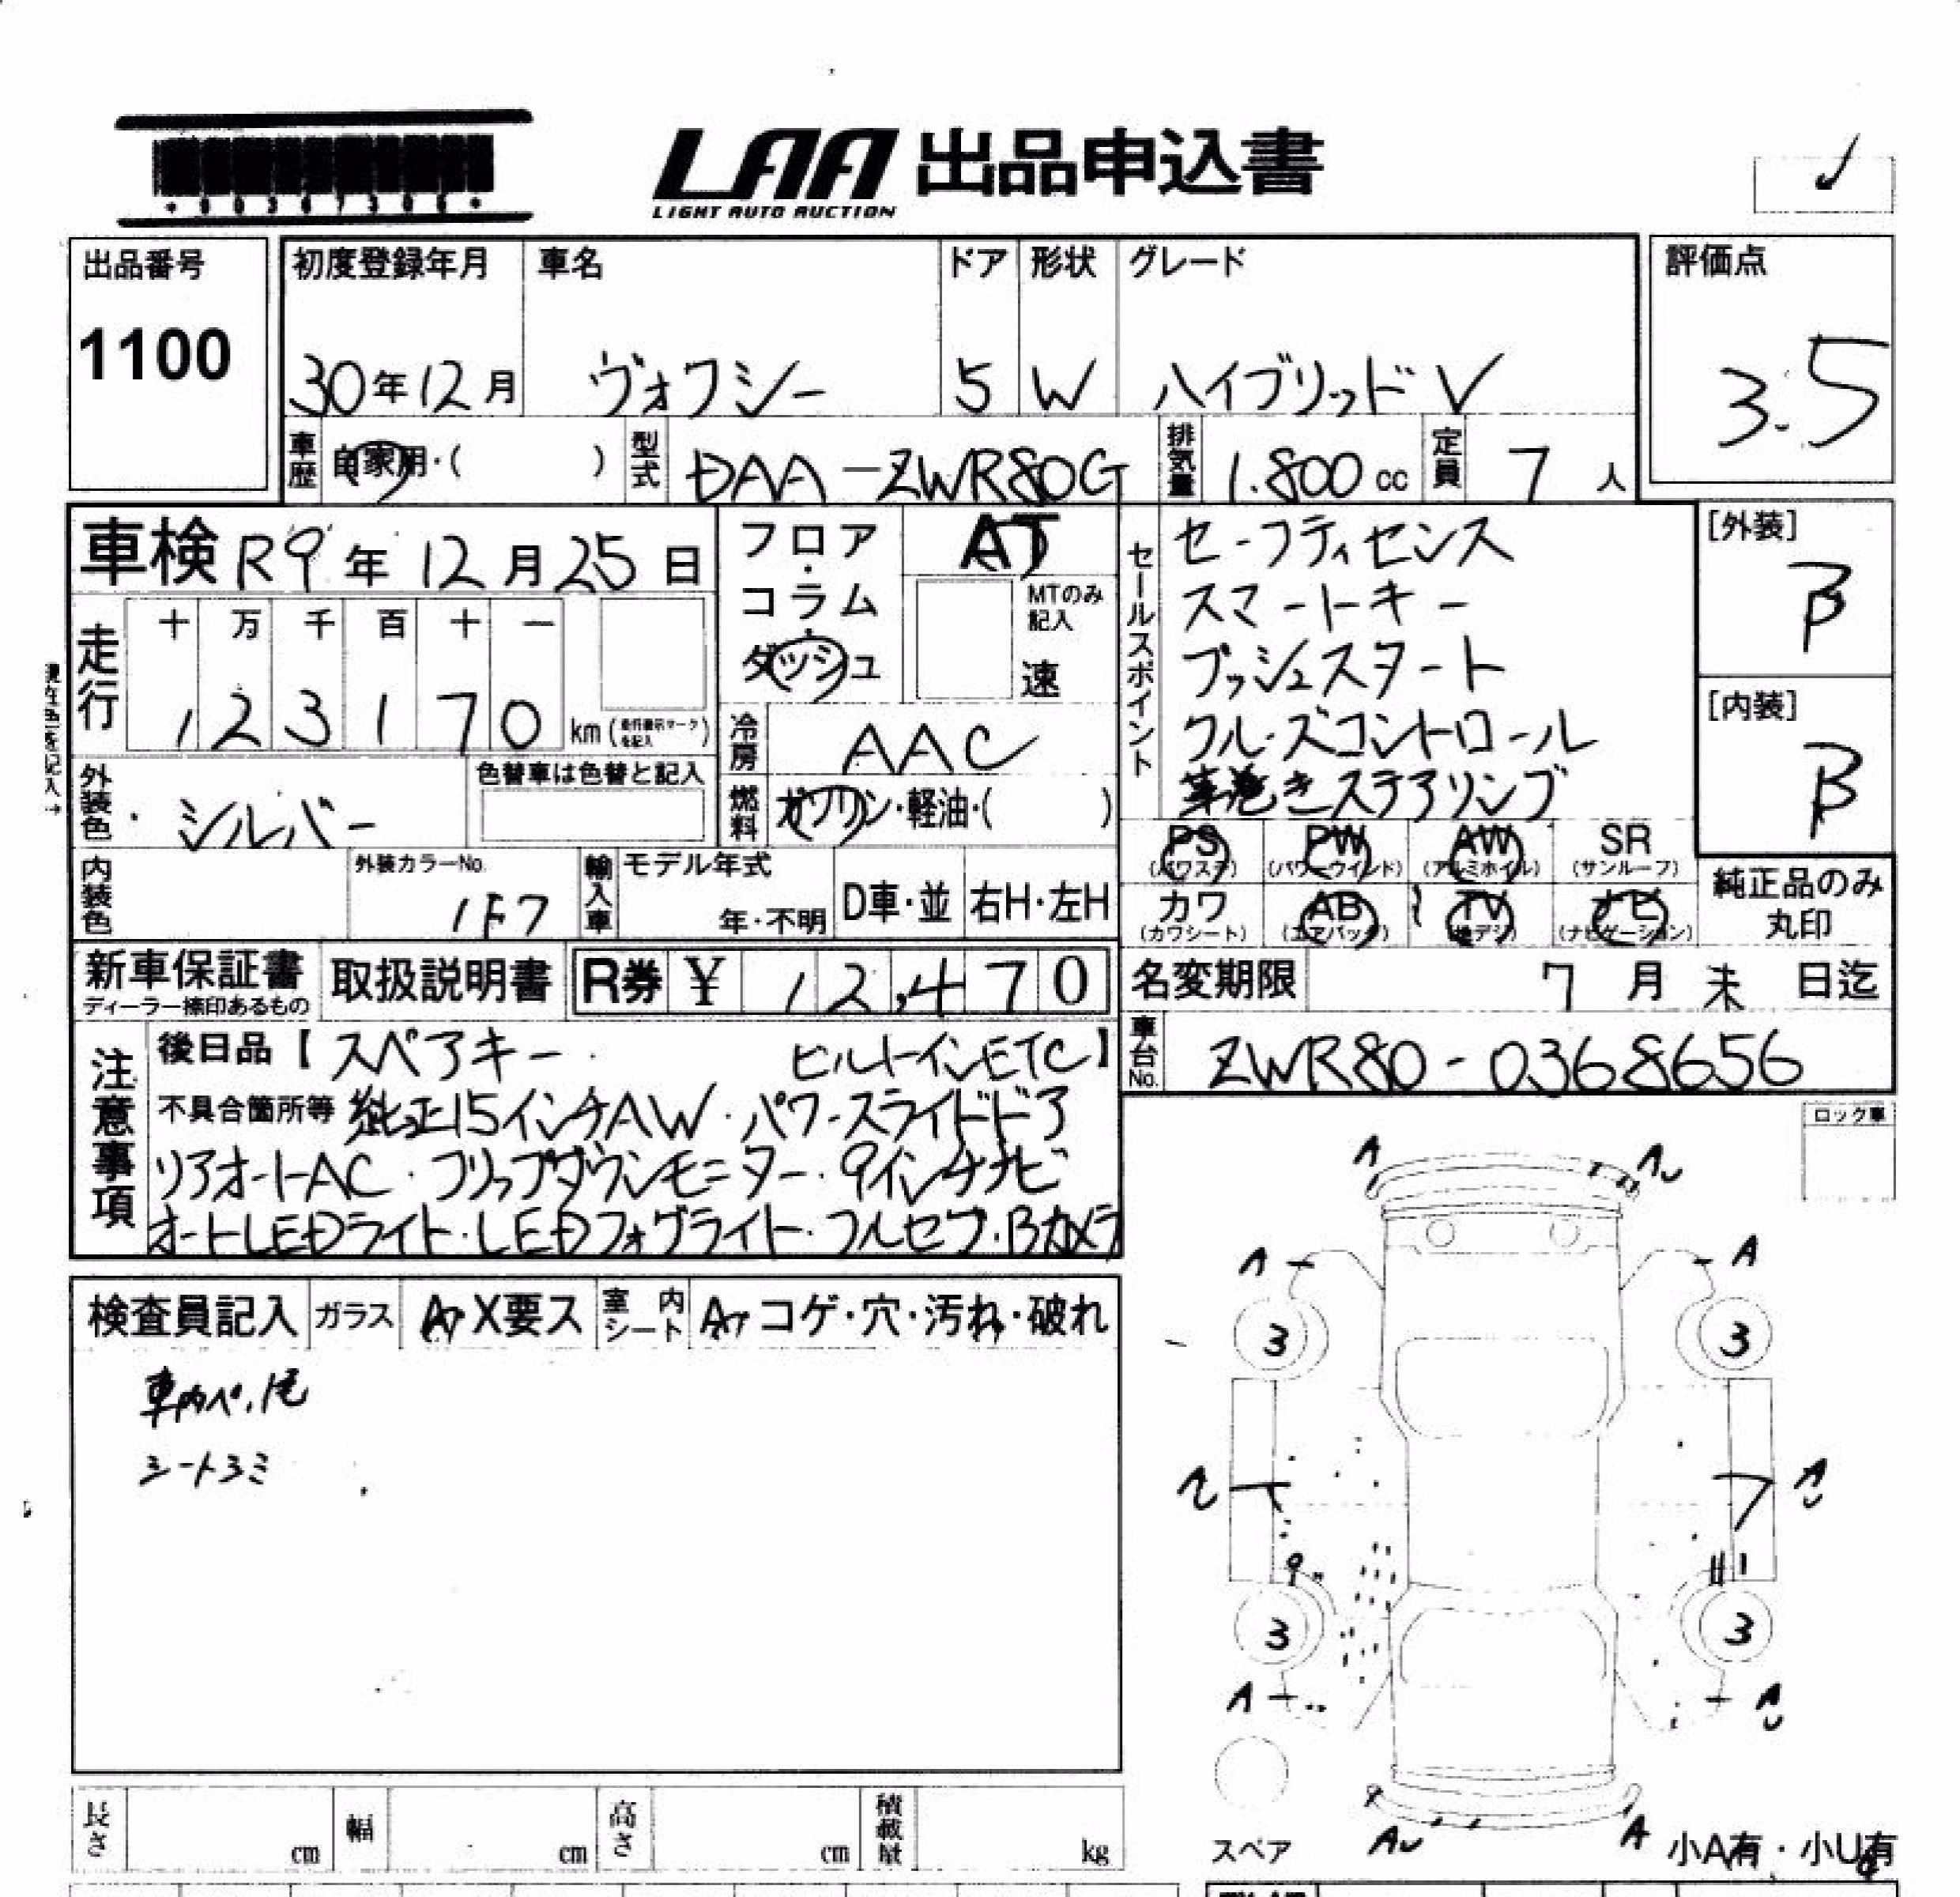 *00367306*
LAA 出品申込書
LIGHT AUTO AUCTION
出品番号 初度登録年月 車名 ドア 形状 グレード 評価点
1100 30年12月 ヴォクシー 5 W ハイブリッドV 3.5
車歴 自家用・( ) 型式 DAA-ZWR80G 排気量 1.800cc 定員 7人
車検 R9年12月25日
フロア・コラム・ダッシュ AT
MTのみ記入
速
走行 十万千百十一
123170 km(走行表示マークを記入)
冷房 AAC
燃料 ガソリン・軽油・( )
外装色 シルバー 色替車は色替と記入
内装色 外装カラーNo. 1F7 輸入車 モデル年式 年・不明 D車・並 右H・左H
セールスポイント
セーフティセンス
スマートキー
プッシュスタート
クルーズコントロール
革巻きステアリング
[外装]
B
[内装]
B
PS PW AW SR
(パワステ) (パワーウインド) (アルミホイル) (サンルーフ)
カワ AB TV ナビ
(カワシート) (エアバック) (地デジ) (ナビゲーション)
純正品のみ
丸印
新車保証書 取扱説明書 R券 ¥ 12,470
ディーラー捺印あるもの
名変期限 7月末日迄
車台No. ZWR80-0368656
注意事項
後日品【スペアキー ビルトインETC】
不具合箇所等 純正15インチAW・パワースライドドア
リアオートAC・フリップダウンモニター・9インチナビ
オートLEDライト・LEDフォグライト・フルセグ・Bカメラ
ロック車
検査員記入 ガラス A X要ス 室内シート A コゲ・穴・汚れ・破れ
シートシミ
A A
A A
3 3
3 3
A A
A A
スペア
小A有・小U有
長さ cm 幅 cm 高さ cm 積載量 kg